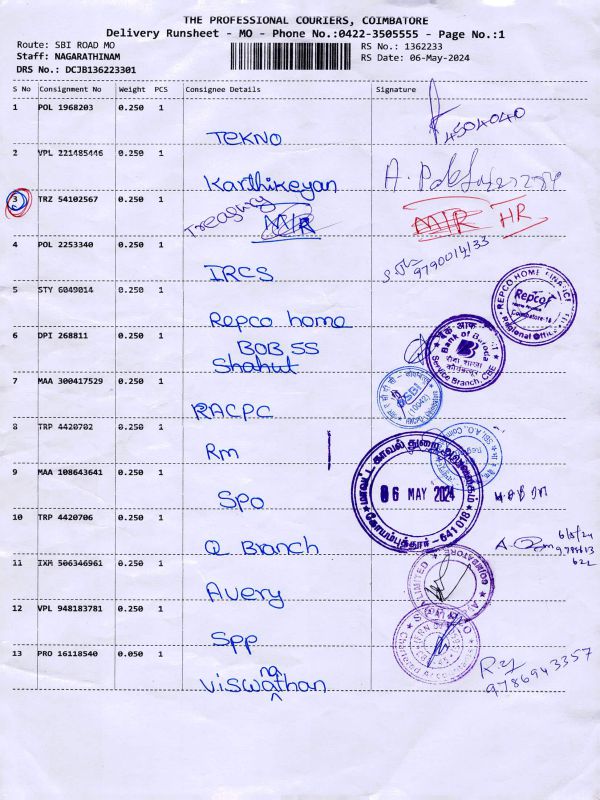 THE PROFESSIONAL COURIERS, COIMBATORE
Delivery Runsheet - MO - Phone No.:0422-3505555 - Page No.:1
Route: SBI ROAD MO
RS No.: 1362233
Staff: NAGARATHINAM
RS Date: 06-May-2024
DRS No.: DCJB136223301
S No Consignment No Weight PCS Consignee Details Signature
1 POL 1968203 0.250 1
TEKNO
4504040
2 VPL 221485446 0.250 1
Karthikeyan
A.
3 TRZ 54102567 0.250 1
Treasury
M/R
M/R HR
4 POL 2253340 0.250 1
IRCS
9790014133
5 STY 6049014 0.250 1
Repco home
REPCO HOME FINANCE
Repco
Coimbatore-18
Regional Office
6 DPI 268811 0.250 1
BOB SS
Shahut
Bank of Baroda
Service Branch, CBE
7 MAA 300417529 0.250 1
RACPC
SBI
8 TRP 4420702 0.250 1
Rm
9 MAA 108643641 0.250 1
SPO
மாவட்ட காவல் துறை அலுவலகம்
06 MAY 2024
கோயம்புத்தூர் - 641 018
10 TRP 4420706 0.250 1
Q Branch
6/5/24
11 IXM 506346961 0.250 1
Avery
COIMBATORE
LIMITED
12 VPL 948183781 0.250 1
SPP
13 PRO 16118540 0.050 1
Viswanathan
9786943357